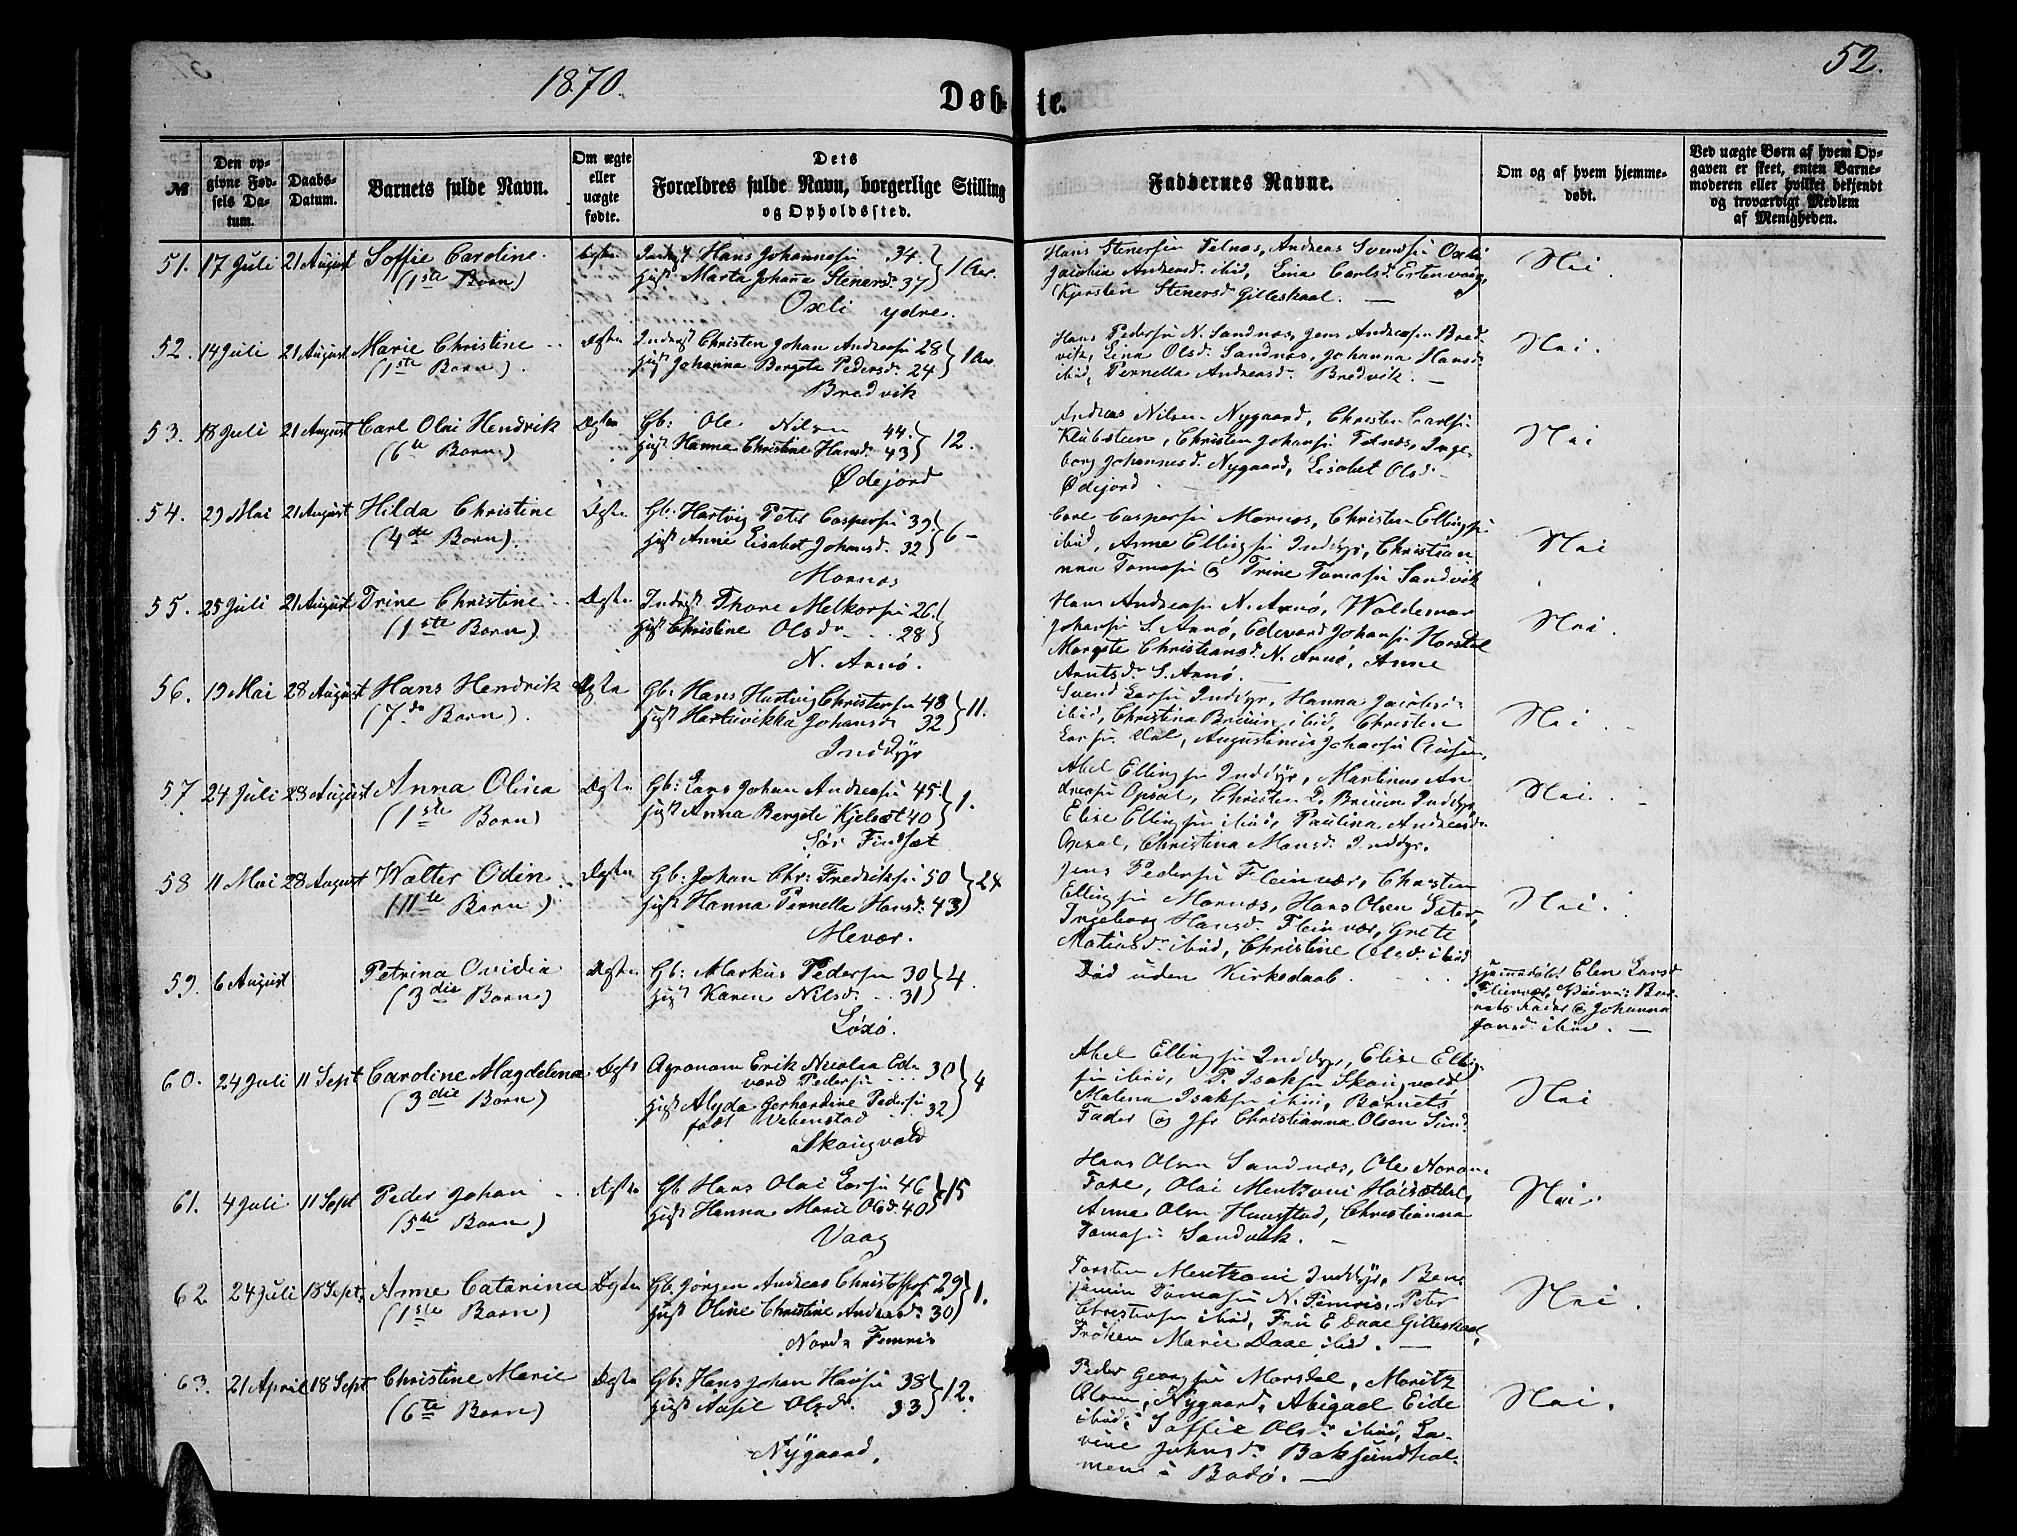 1870.
Døb-
te.
52.
№
Den op-
givne Fød-
sels Da-
tum.
Daabs-
Datum.
Barnets fulde Navn.
Om ægte
eller
uægte
fødte.
Dets
Forældres fulde Navn, borgerlige Stilling
og Opholdssted.
Faddernes Navne.
Om og af hvem hjemme-
døbt.
Ved uægte Børn af hvem Op-
gaven er skeet, enten Barne-
moderen eller hvilket bekjendt
og troværdigt Medlem
af Menigheden.
51. 17 Juli 21 August Soffie Caroline
(1ste Barn)
Hans Johannesen 34. } 1 Aar.
Hust Marta Johana Stenersdr 37
Oxli ydre.
Hans Stenersen Telnæs, Andreas Svendsen Oxli
Jacobia Andreasd. ibid, Lina Carlsd. Estenvaag,
Kjersten Stenersd. Gilleskaal.
Nei.
52. 14 Juli 21 August Marie Christine
(1ste Barn).
Ægte Inderst Christen Johan Andreasen 28 } 1 Aar
Hust Johanna Bergete Pedersd. 24
Bredvik
Hans Pedersen N. Sandnæs, Jens Andreasen Bred-
vik, Lina Olsd. Sandnæs, Johanna Hansd.
ibid, Pernella Andreasd. Bredvik.
Nei.
53. 18 Juli 21 August Carl Olai Hendrik
(6te Barn)
Ægte Gb: Ole Nilsen 44. } 12.
Hust Hanna Christine Hansd. 43
Ødejord
Andreas Nilsen Nygaard, Christen Carlsen
Klubsteen, Christen Johansen Telnæs, Inge-
borg Johannesd. Nygaard, Lisabet Olsd.
Ødejord
Nei
54. 29 Mai 21 August Hilda Christine
(4de Barn).
Ægte Gb: Hartvig Peter Caspersen 39 } 6
Hust Anne Lisabet Johansd. 32
Mornæs
Carl Caspersen Mornæs, Christen Ellingsen
ibid, Anne Ellingsen Inddyr, Christian
nna Tomasen & Trine Tomasen Sandvik
Nei
55. 25 Juli 21 August Trine Christine
(1ste Barn)
Ægte Inderst Thore Melkorsen 26. }
Hust Christine Olsdr 28
N. Arnø.
Hans Andreasen N. Arnø, Waldemar
Johansen S. Arnø, Edevard Johansen Horsdal
Margete Christiansd. N. Arnø, Anne
Arntsd. S. Arnø.
Nei.
56. 19 Mai 28 August Hans Hendrik
(7de Barn).
Ægte Gb: Hans Hartvig Christensen 48 } 11.
Hust Hartuvikka Johansd. 32
Inddyr
Svend Larsen Inddyr, Hanna
ibid, Christina Bruun ibid, Christen
Larsen Augustinus Johansen
Nei
57. 24 Juli 28 August Anna Olina
(1ste Barn)
Ægte Gb: Lars Johan Andreasen 45 } 1.
Hust Anna Bergete Kjelsæt 40
Sør Findsæt
Abel Ellingsen Inddyr, Martinus An
dreasen Opsal, Christen D. Bruun Inddyr,
Elise Ellingsen ibid, Paulina Andreasd.
Opsal, Christina Monsd. Inddyr.
Nei.
58 11 Mai 28 August Walter Odin
(11te Barn)
Ægte Gb: Johan Chr: Fredriksen 50 } 24
Hust Hanna Pernella Hansd. 43
Mevær.
Jens Pedersen Fleinvær, Christen
Ellingsen Mornæs, Hans Olsen Sæter,
Ingeborg Hansd. Fleinvær, Grete
Matiasd. ibid, Christine Olsd. ibid
Nei.
59. 6 August Petrina Ovidia
(3die Barn)
Ægte Gb: Markus Pedersen 30 } 4.
Hust Karen Nilsd. 31
Løxø.
Død uden Kirkedaab.
Hjemmedøbt Elen Larsd
Fleinvær, Bar-
nets Fader & Johanna
Jonsd. ibid.
60. 24 Juli 11 Sept Caroline Magdelena
(3die Barn)
Ægte Agronom Erik Nicolaa Ed-
vard Pedersen 30 } 4
Hust Alyda Gerhardine Pedersen 32
født
Skaugvold
Abel Ellingsen Inddyr, Elise Elling-
sen ibid, P. Isaksen Skaugvold
Malena Isaksen ibid, Barnets
Fader & Jfr Christianna Olsen Sund.
Nei
61. 4 Juli 11 Sept Peder Johan
(5te Barn)
Ægte Gb Hans Olai Larsen 46 } 15
Hust Hanna Marie Olsd. 40
Vaag
Hans Olsen Sandnæs, Ole
Fore, Olai Mentzoni
Anna Olsen Christianna
Tomasen Sandvik.
Nei.
62 24 Juli 18 Sept. Anne Catarina
(1ste Barn)
Ægte Gb. Jørgen Andreas Christofers 29 } 1.
Hust Oline Christine Andreasdr 30
Nordr Femris
Torsten Mentzoni Inddyr, Ben-
jamin Tomasen N. Femris, Peter
Christensen ibid, Fru E Daae Gilleskaal,
Frøken Marie Daae ibid.
Nei.
63. 21 April 18 Sept Christine Marie
(6te Barn)
Ægte Gb: Hans Johan Hansen 38 } 12.
Hust Olsdr. 33
Nygaard,
Peder Georgsen Morsdal, Moritz
Olsen, Nygaard, Abigael Eide
ibid, Soffie Olsdr ibid, La-
vine Johnsd. Baksundhol-
men i Bodø.
Nei.